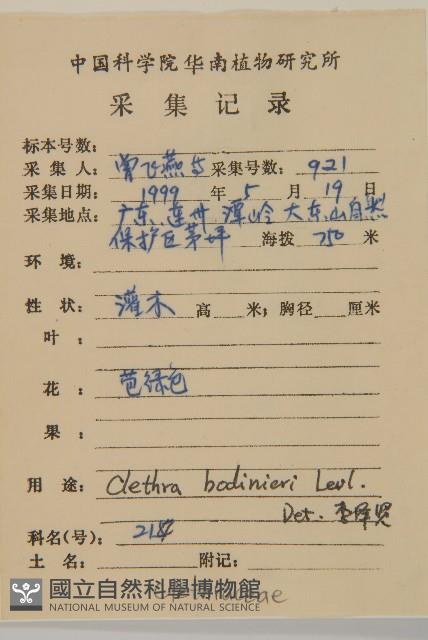 中国科学院华南植物研究所
采 集 记 录
标本号数:
采 集 人: 曾飞燕 采集号数: 921
采集日期: 1999 年 5 月 19 日
采集地点: 广东、连州 潭岭 大东山自然
保护区茅坪 海拨 750 米
环 境:
性 状: 灌木 高 米; 胸径 厘米
叶 :
花 : 芭绿色
果 :
用 途: Clethra bodinieri Levl.
Det. 李泽贤
科名(号): 214
土 名: 附记:
國立自然科學博物館
NATIONAL MUSEUM OF NATURAL SCIENCE